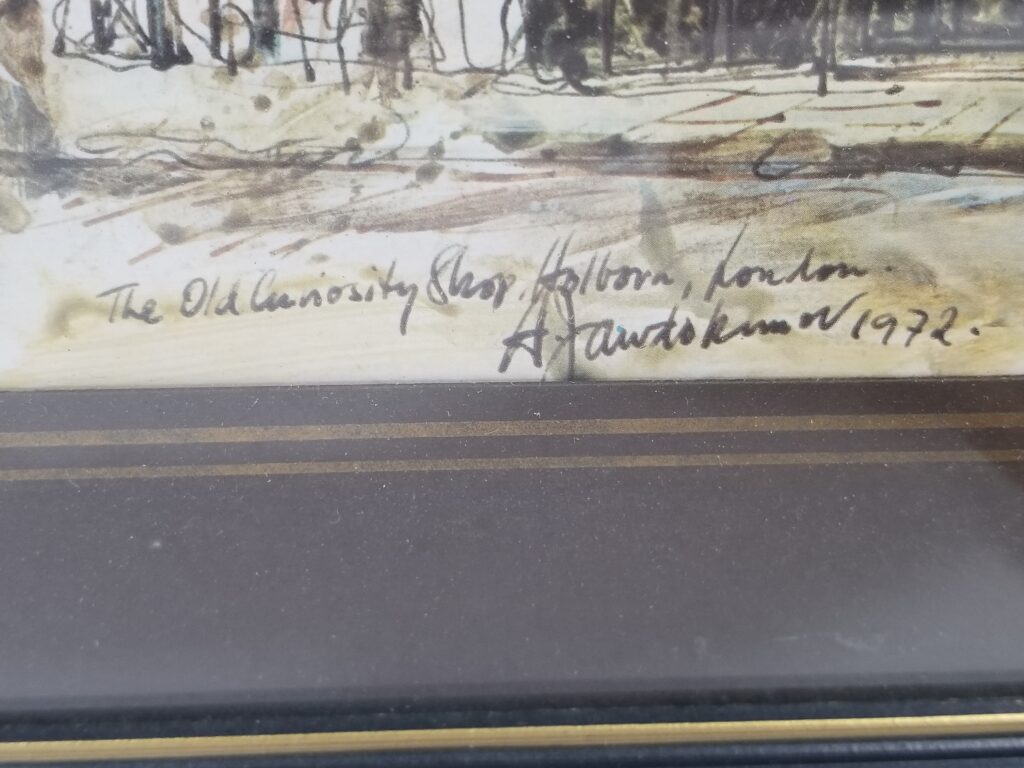 The Old Curiosity Shop, Holborn, London.
A. Jawdokimov 1972.